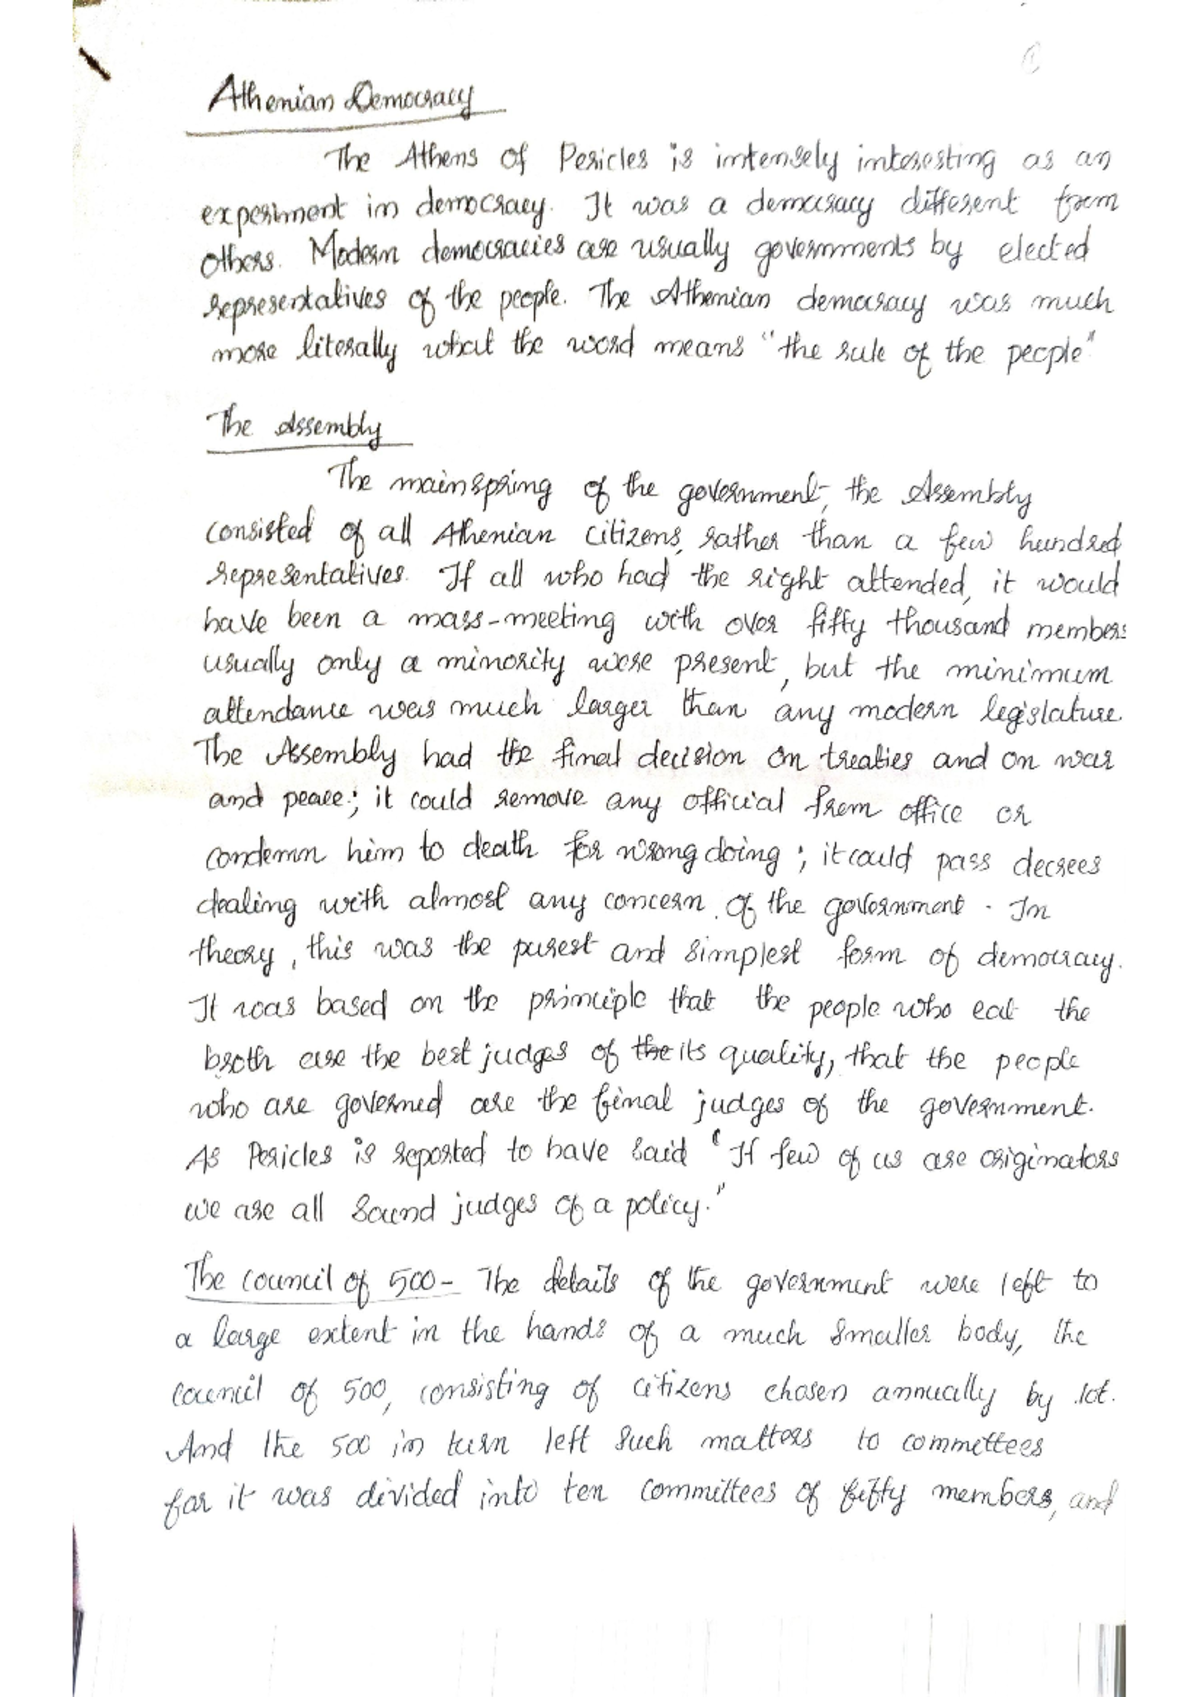 Athenian Democracy
The Athens of Pericles is intensely interesting as an
experiment in democracy. It was a democracy different from
others. Modern democracies are usually governments by elected
representatives of the people. The Athenian democracy was much
more literally what the word means "the rule of the people"
The Assembly
The mainspring of the government, the Assembly
consisted of all Athenian citizens, rather than a few hundred
representatives. If all who had the right attended, it would
have been a mass-meeting with over fifty thousand members
usually only a minority were present, but the minimum
attendance was much larger than any modern legislature.
The Assembly had the final decision on treaties and on war
and peace; it could remove any official from office or
condemn him to death for wrong doing; it could pass decrees
dealing with almost any concern of the government. In
theory, this was the purest and simplest form of democracy.
It was based on the principle that the people who eat the
broth are the best judges of the its quality, that the people
who are governed are the final judges of the government.
As Pericles is reported to have said "If few of us are originators
we are all sound judges of a policy."
The council of 500- The details of the government were left to
a large extent in the hands of a much smaller body, the
council of 500, consisting of citizens chosen annually by lot.
And the 500 in turn left such matters to committees
for it was divided into ten committees of fifty members, and